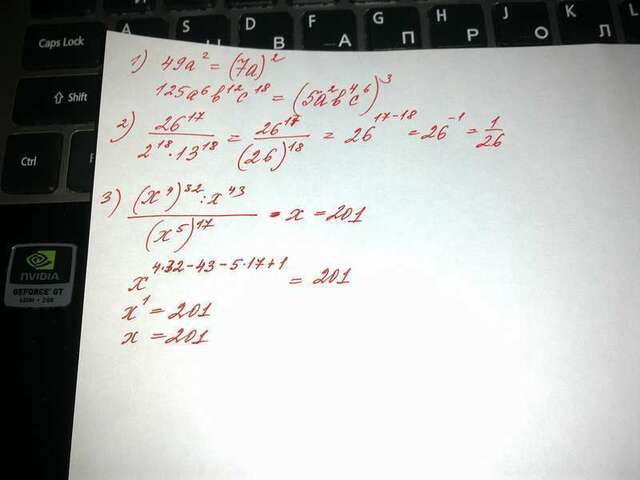 Caps Lock
A
S
D
F
G
H
J
K
L
В
А
П
Р
О
Л
Shift
Ctrl
NVIDIA
GEFORCE GT
1) 49a² = (7a)²
125a⁶b¹²c¹⁸ = (5a²b⁴c⁶)³
2) 26¹⁷ / 2¹⁸·13¹⁸ = 26¹⁷ / (26)¹⁸ = 26¹⁷⁻¹⁸ = 26⁻¹ = 1/26
3) (x⁴)³² : x⁴³ / (x⁵)¹⁷ · x = 201
x^4·32-43-5·17+1 = 201
x¹ = 201
x = 201